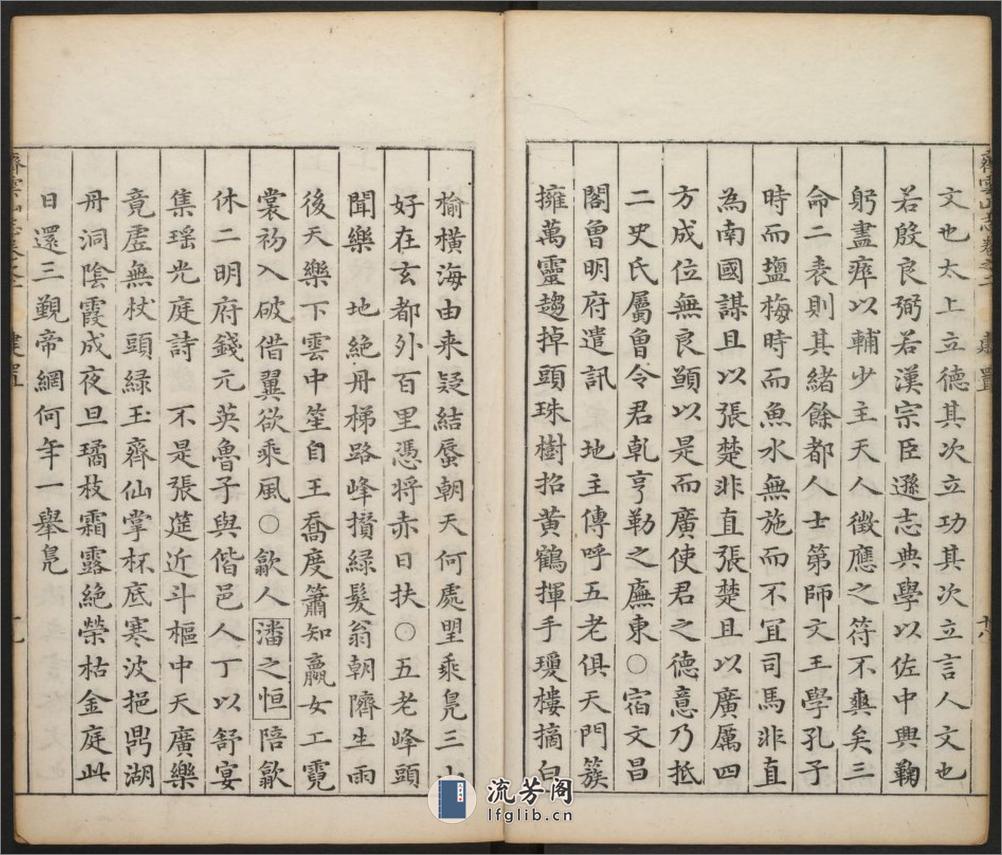 齊雲山志卷之二 建置 十八
文也太上立德其次立功其次立言人文也
若殷良弼若漢宗臣遜志典學以佐中興鞠
躬盡瘁以輔少主天人徵應之符不爽矣三
命二表則其緒餘都人士第師文王學孔子
時而塩梅時而魚水無施而不冝司馬非直
為南國謀且以張楚非直張楚且以廣厲四
方成位無良顕以是而廣使君之德意乃抵
二史氏屬魯令君乹亨勒之廡東○宿文昌
閣魯明府遣訊 地主傳呼五老俱天門簇
擁萬靈趨掉頭珠樹招黄鶴揮手瓊樓摘白
榆橫海由来疑結蜃朝天何處朢乘鳬三山
好在玄都外百里憑將赤日扶○五老峰頭
聞樂 地絶丹梯路峰攅緑髮翁朝隮生雨
後天樂下雲中笙自王喬度簫知嬴女工霓
裳初入破借翼欲乘風○歙人潘之恒陪歙
休二明府錢元英魯子與偕邑人丁以舒宴
集瑶光庭詩 不是張筵近斗樞中天廣樂
竟虚無杖頭緑玉齊仙掌杯底寒波挹鼎湖
丹洞陰霞成夜旦璚枝霜露絶榮枯金庭此
日還三覲帝網何年一舉鳬
齊雲山志卷之二 建置 十九
流芳阁
lfglib.cn